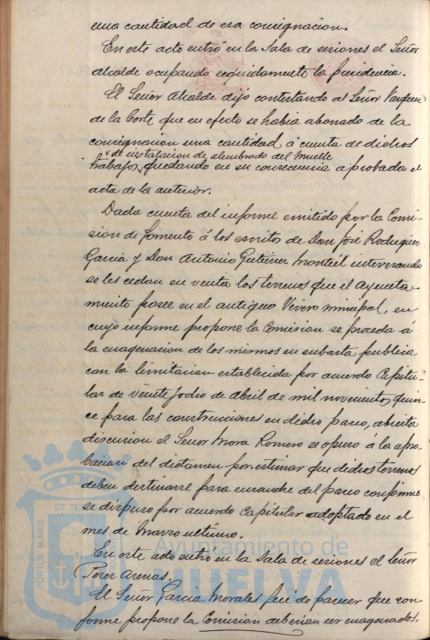 una cantidad de esa consignacion.
En este acto entró en la Sala de sesiones el Señor
Alcalde ocupando seguidamente la Presidencia.
El Señor Alcalde dijo contestando al Señor Vazquez
de la Corte que en efecto se habia abonado de la
consignacion una cantidad á cuenta de dichos
de instalacion de alumbrado del Muelle
trabajos, quedando en su consecuencia aprobada el
acta de la anterior.
Dada cuenta del informe emitido por la Comi-
sion de Fomento á los escritos de Don José Rodriguez
Garcia y Don Antonio Gutierrez Montiel interesando
se les cedan en venta los terrenos que el Ayunta-
miento posee en el antiguo Vivero municipal, en
cuyo informe propone la Comision se proceda á
la enagenacion de los mismos en subasta publica
con la limitacion establecida por acuerdo Capitu-
lar de veinte de Abril de mil novecientos quin-
ce para las construcciones en dicho paseo, abierta
discusion el Señor Mora Romero se opuso á la apro-
bacion del dictamen por estimar que dichos terrenos
deben destinarse para ensanche del paseo conforme
se dispuso por acuerdo Capitular adoptado en el
mes de Marzo ultimo.
En este acto entró en la Sala de sesiones el Señor
Perez Arenas.
El Señor Garcia Morales fué de parecer que con-
forme propone la Comision deberian ser enagenados.
Ayuntamiento de
HUELVA
PORTUS MARIS
ET TE